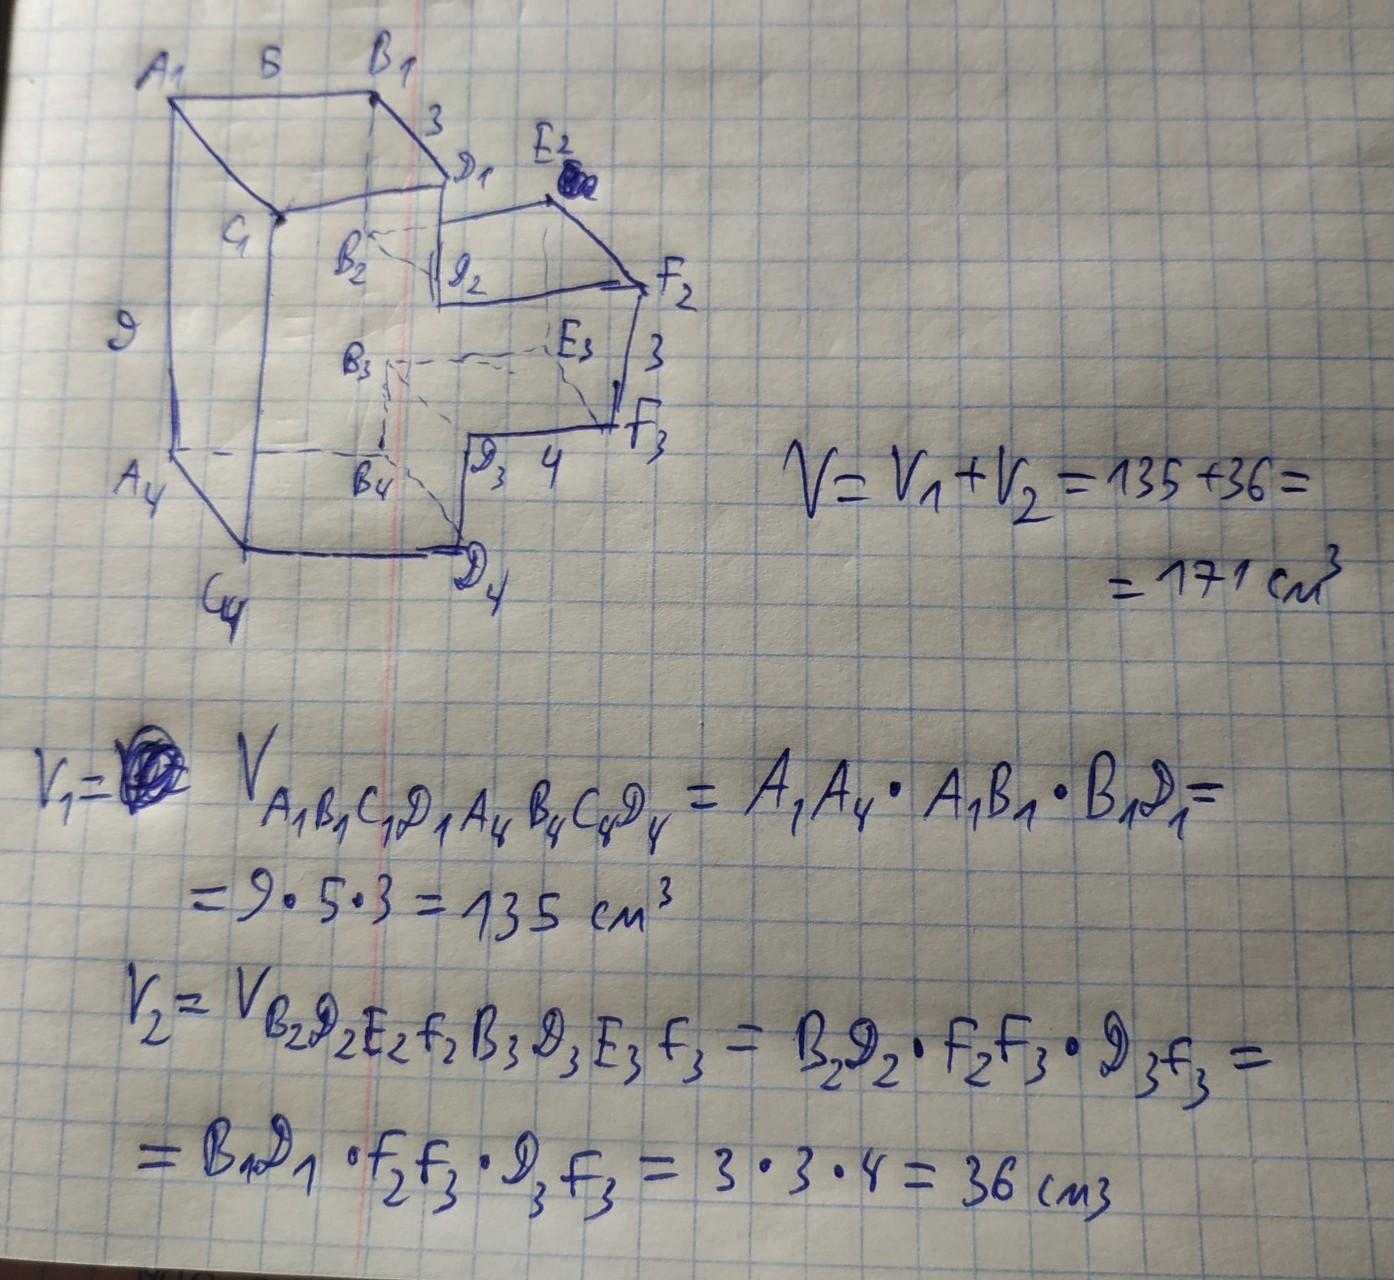 A₁ 5 B₁
3
E₂
D₁
C₁
B₂ D₂ F₂
9 B₃ E₃ 3
F₃
A₄ B₄ D₃ 4
C₄ D₄
V = V₁ + V₂ = 135 + 36 =
= 171 см³
V₁ = V A₁B₁C₁D₁A₄B₄C₄D₄ = A₁A₄ · A₁B₁ · B₁D₁ =
= 9 · 5 · 3 = 135 см³
V₂ = V B₂D₂E₂F₂B₃D₃E₃F₃ = B₂D₂ · F₂F₃ · D₃F₃ =
= B₁D₁ · F₂F₃ · D₃F₃ = 3 · 3 · 4 = 36 см3